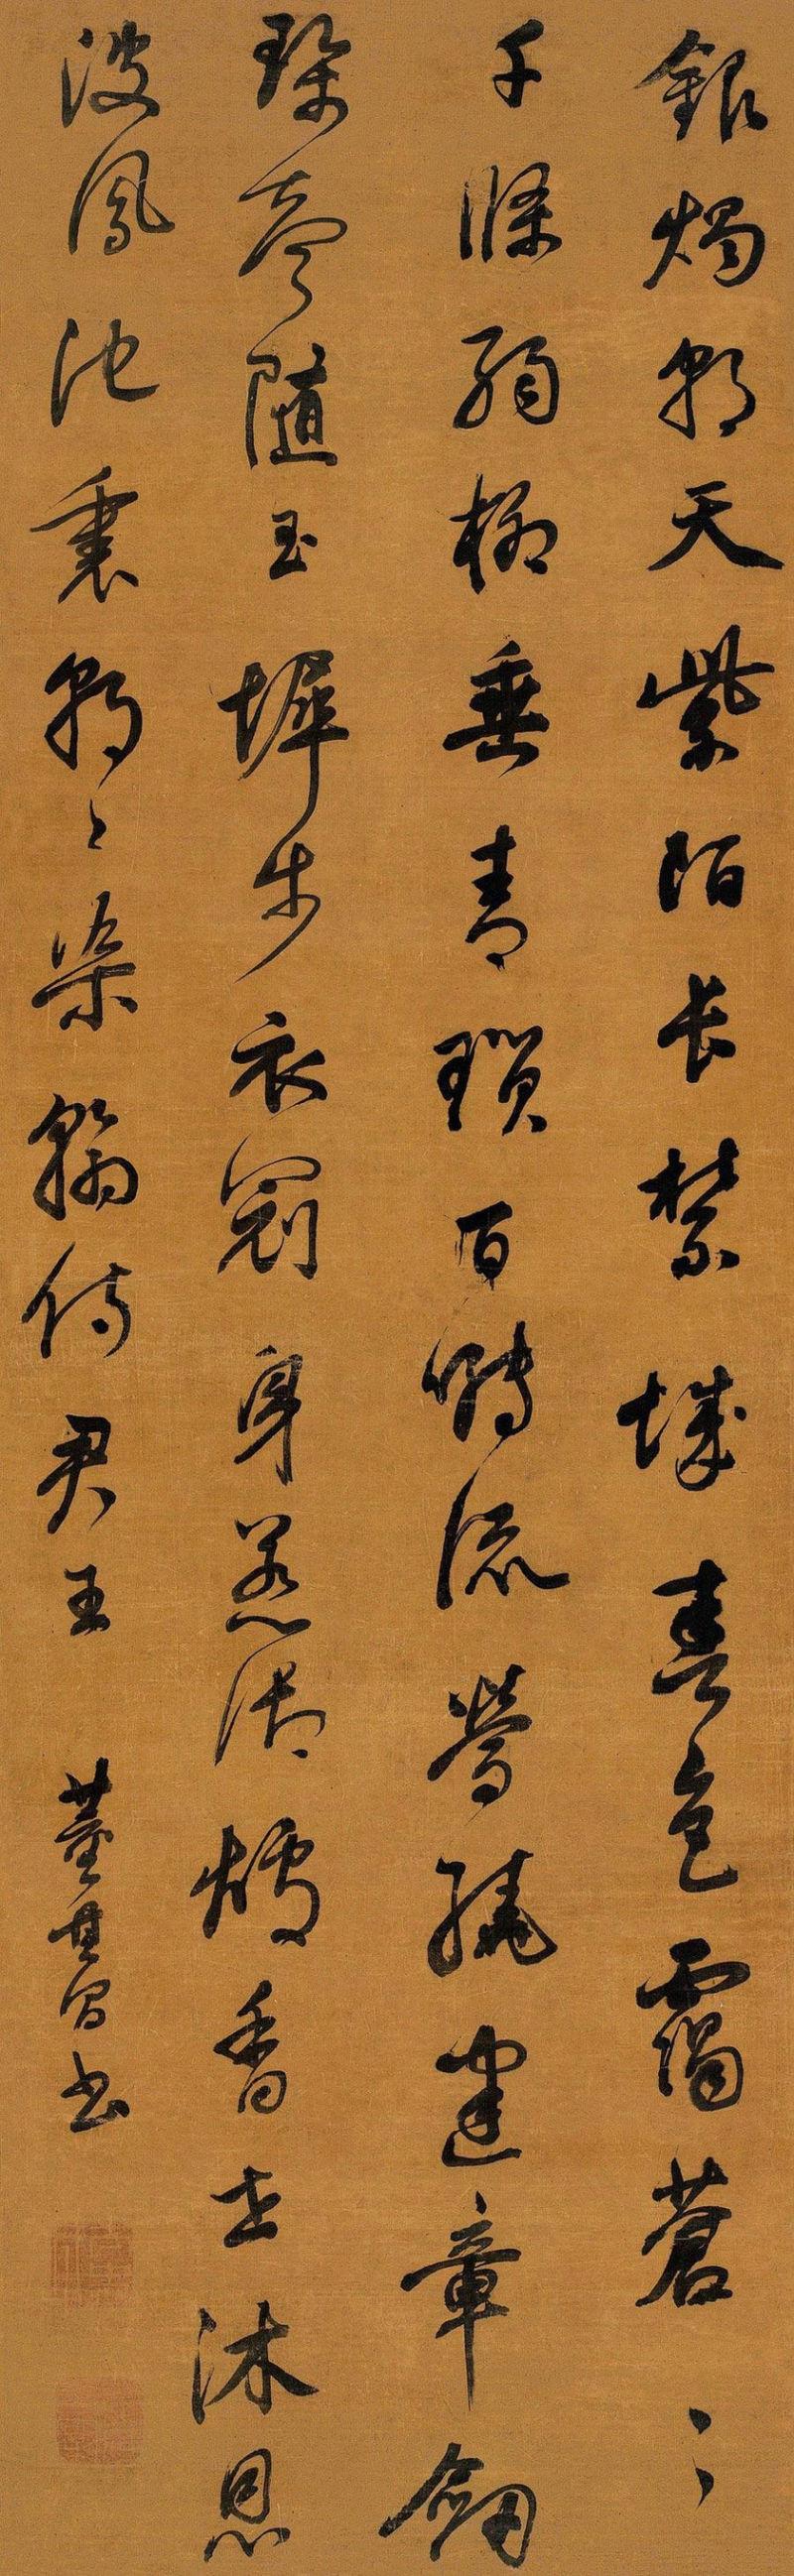 銀燭朝天紫陌長禁城春色靄蒼〻
千條弱柳垂青瑣百囀流鶯繞建章劍
珮聲隨玉墀步衣冠身惹御爐香共沐恩
波鳳池裏朝〻染翰侍君王 董其昌書